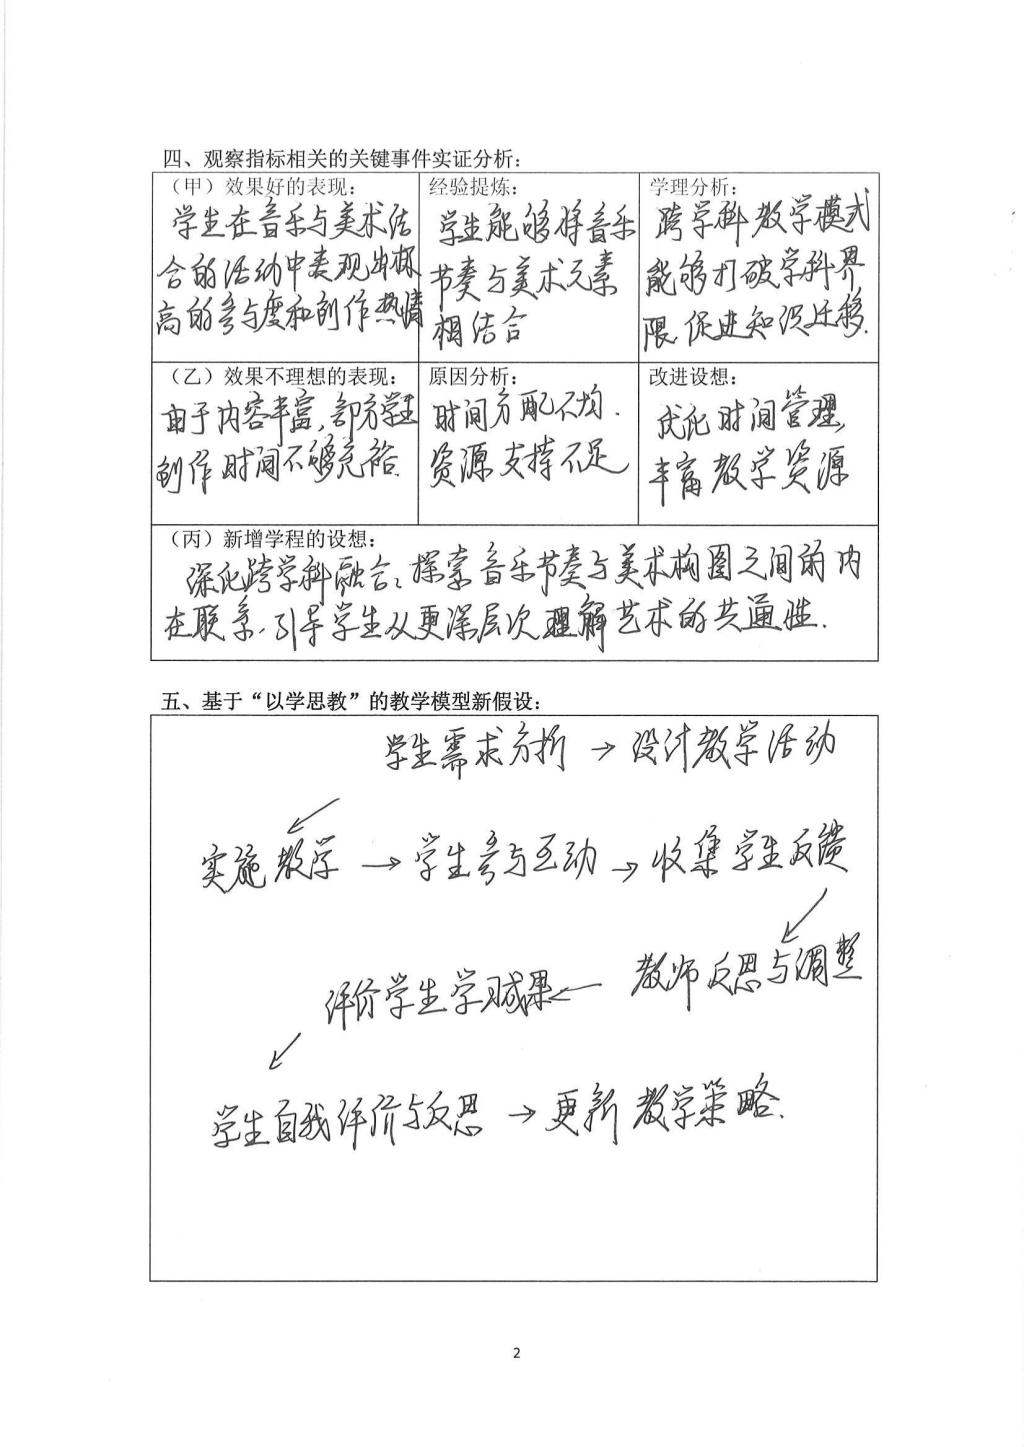 四、观察指标相关的关键事件实证分析：
（甲）效果好的表现：
学生在音乐与美术结
合的活动中表现出极
高的参与度和创作热情
经验提炼：
学生能够将音乐
节奏与美术元素
相结合
学理分析：
跨学科教学模式
能够打破学科界
限，促进知识迁移.
（乙）效果不理想的表现：
由于内容丰富，部分学生
创作时间不够充裕.
原因分析：
时间分配不均.
资源支持不足
改进设想：
优化时间管理，
丰富教学资源
（丙）新增学程的设想：
深化跨学科融合：探索音乐节奏与美术构图之间的内
在联系，引导学生从更深层次理解艺术的共通性.
五、基于“以学思教”的教学模型新假设：
学生需求分析 → 设计教学活动
实施教学 → 学生参与互动 → 收集学生反馈
教师反思与调整
评价学生学习成果
学生自我评价与反思 → 更新教学策略.
2